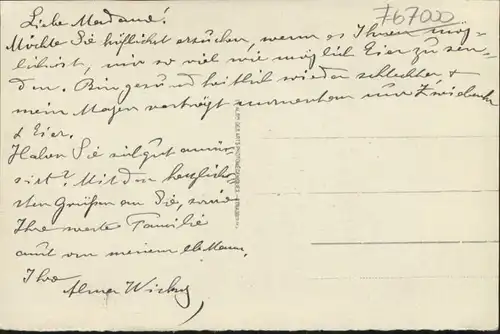 Liebe Madame!
767000
Möchte Sie höflichst ersuchen, wenn es Ihnen mög-
lich ist, mir so viel wie möglich Eier zu sen-
den. Bin gesundheitlich wieder schlechter, &
mein Magen verträgt momentan nur Zwieback
& Eier.
Haben Sie sich gut amü-
siert? Mit den herzlich-
sten Grüßen an Sie, sowie
Ihre werte Familie
auch von meinem Mann.
Ihre
Alma